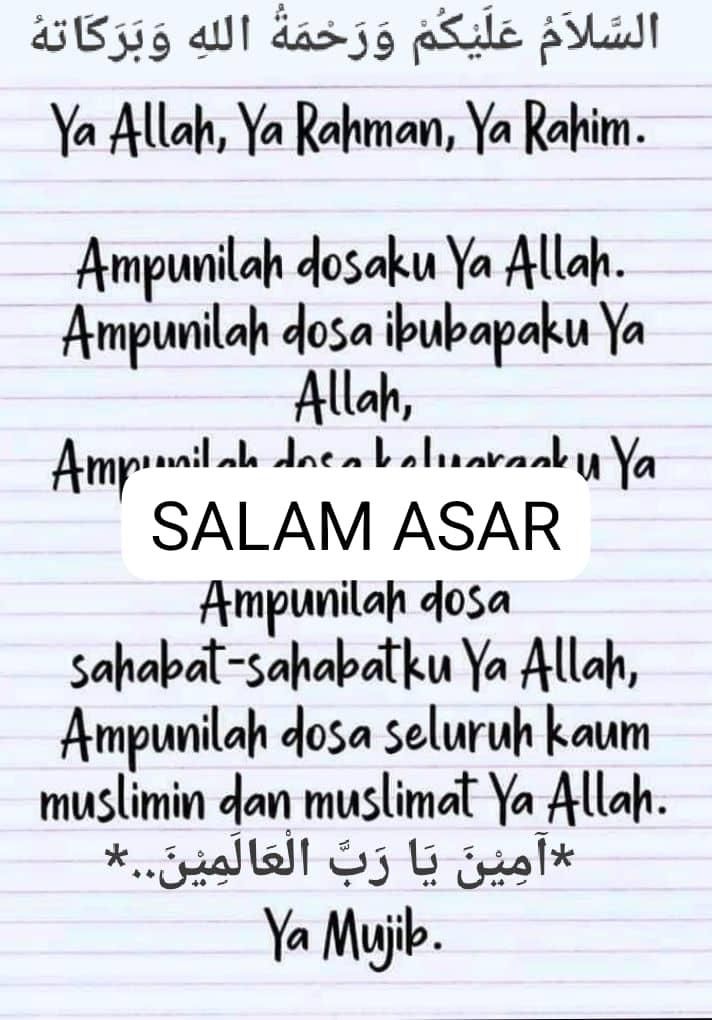 السَّلاَمُ عَلَيْكُمْ وَرَحْمَةُ اللهِ وَبَرَكَاتهُ
Ya Allah, Ya Rahman, Ya Rahim.
Ampunilah dosaku Ya Allah.
Ampunilah dosa ibubapaku Ya
Allah,
Ampunilah dosa keluargaku Ya
SALAM ASAR
Ampunilah dosa
sahabat-sahabatku Ya Allah,
Ampunilah dosa seluruh kaum
muslimin dan muslimat Ya Allah.
*آمِيْنَ يَا رَبَّ الْعَالَمِيْنَ..*
Ya Mujib.